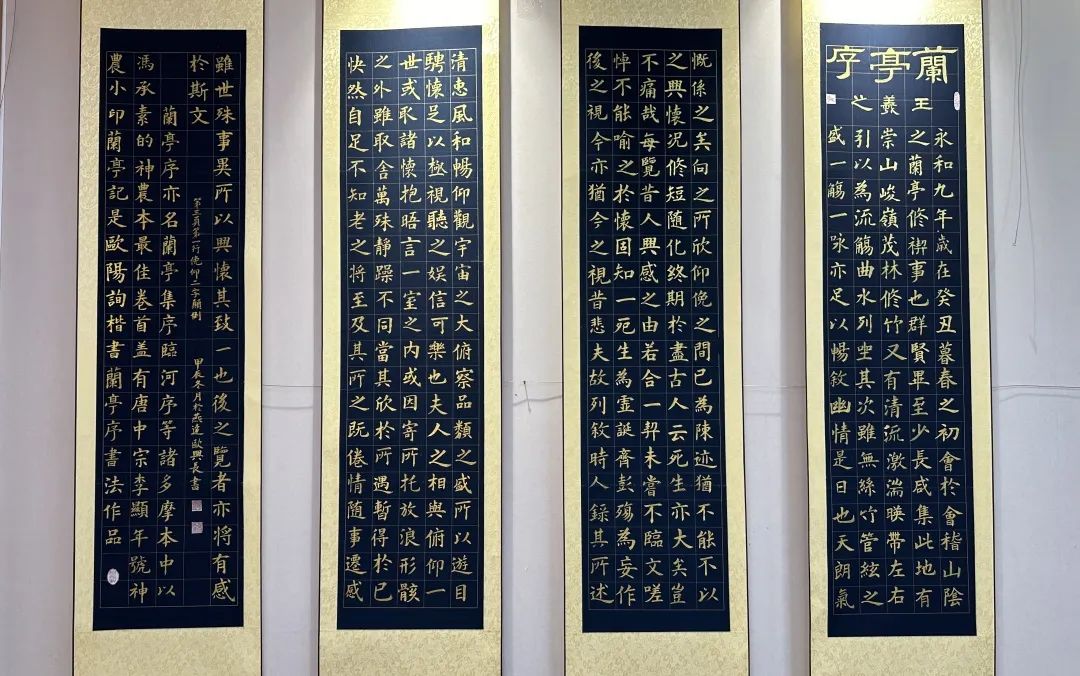 蘭亭序
王羲之
永和九年歲在癸丑暮春之初會於會稽山陰
之蘭亭修禊事也群賢畢至少長咸集此地有
崇山峻嶺茂林修竹又有清流激湍暎帶左右
引以為流觴曲水列坐其次雖無絲竹管絃之
盛一觴一咏亦足以暢敘幽情是日也天朗氣
慨係之矣向之所欣仰俛之間已為陳迹猶不能不以
之興懷況修短隨化終期於盡古人云死生亦大矣豈
不痛哉每覽昔人興感之由若合一契未嘗不臨文嗟
悼不能喻之於懷固知一死生為虛誕齊彭殤為妄作
後之視今亦猶今之視昔悲夫故列敘時人錄其所述
清惠風和暢仰觀宇宙之大俯察品類之盛所以遊目
騁懷足以極視聽之娛信可樂也夫人之相與俯仰一
世或取諸懷抱晤言一室之內或因寄所托放浪形骸
之外雖取舍萬殊靜躁不同當其欣於所遇暫得於己
快然自足不知老之將至及其所之既倦情隨事遷感
雖世殊事異所以興懷其致一也後之覽者亦將有感
於斯文
第三頁第一行俛仰二字顛倒
甲辰冬月於燕達歐興長書
蘭亭序亦名蘭亭集序臨河序等諸多摩本中以
馮承素的神農本最佳卷首蓋有唐中宗李顯年號神
農小印蘭亭記是歐陽詢楷書蘭亭序書法作品